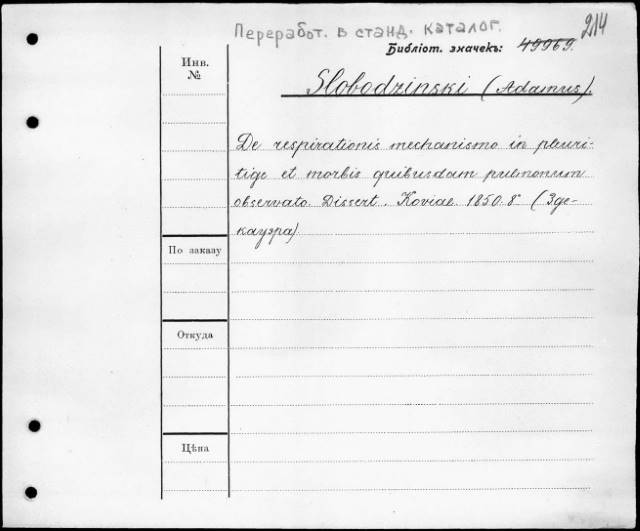 Переработ. в станд. каталог.
214
Библіот. значекъ: 49969.
Инв. №
Slobodzinski (Adamus).
De respirationis mechanismo in pleuri-
tige et morbis quibusdam pulmonum
observato. Dissert. Koviae. 1850. 8° (Зде-
кауэра)
По заказу
Откуда
Цѣна